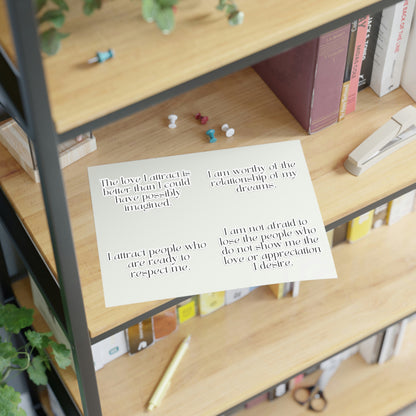 The love I attract is
better than I could
have possibly
imagined.
I am worthy of the
relationship of my
dreams.
I attract people who
are ready to
respect me.
I am not afraid to
lose the people who
do not show me the
love or appreciation
I desire.